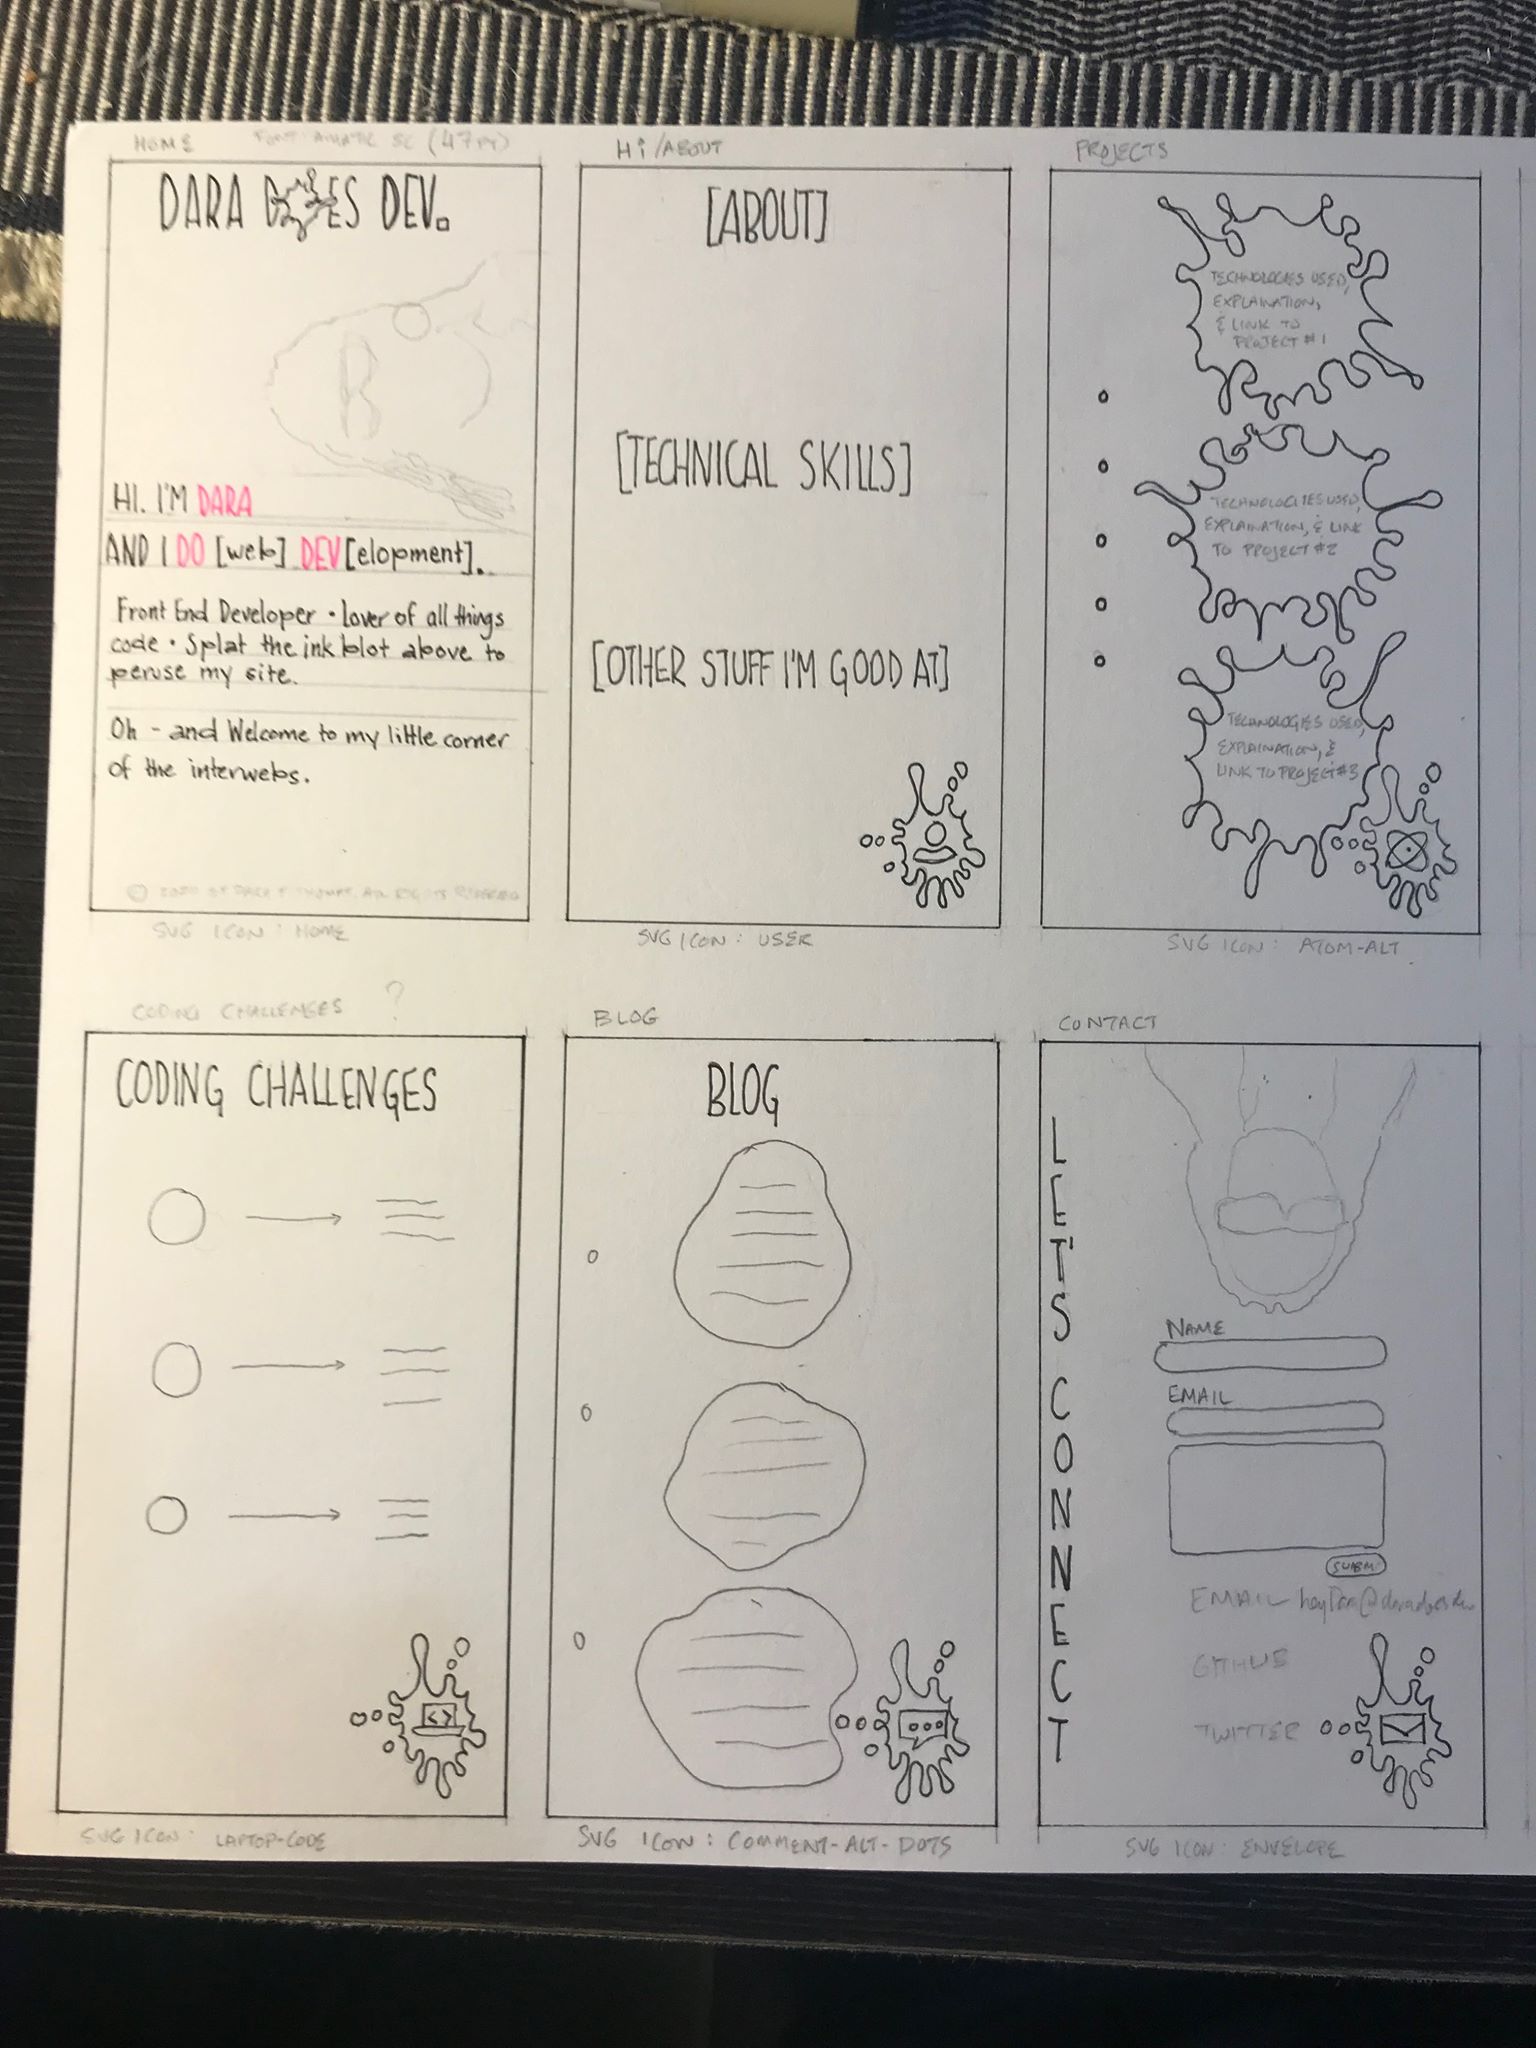 HOME
FONT: AMATIC SC (47PT)
DARA DOES DEV.
B
HI. I'M DARA
AND I DO [web] DEV[elopment].
Front End Developer • lover of all things
code • Splat the ink blot above to
peruse my site.
Oh - and Welcome to my little corner
of the interwebs.
© 2020 BY DARA T. ALL RIGHTS RESERVED
SVG ICON: HOME
Hi/ABOUT
[ABOUT]
[TECHNICAL SKILLS]
[OTHER STUFF I'M GOOD AT]
SVG ICON: USER
PROJECTS
TECHNOLOGIES USED,
EXPLAINATION,
& LINK TO
PROJECT #1
TECHNOLOGIES USED,
EXPLAINATION, & LINK
TO PROJECT #2
TECHNOLOGIES USED,
EXPLAINATION, &
LINK TO PROJECT #3
SVG ICON: ATOM-ALT
CODING CHALLENGES ?
CODING CHALLENGES
< >
SVG ICON: LAPTOP-CODE
BLOG
BLOG
SVG ICON: COMMENT-ALT-DOTS
CONTACT
LET'S CONNECT
NAME
EMAIL
SUBM
EMAIL
GITHUB
TWITTER
SVG ICON: ENVELOPE